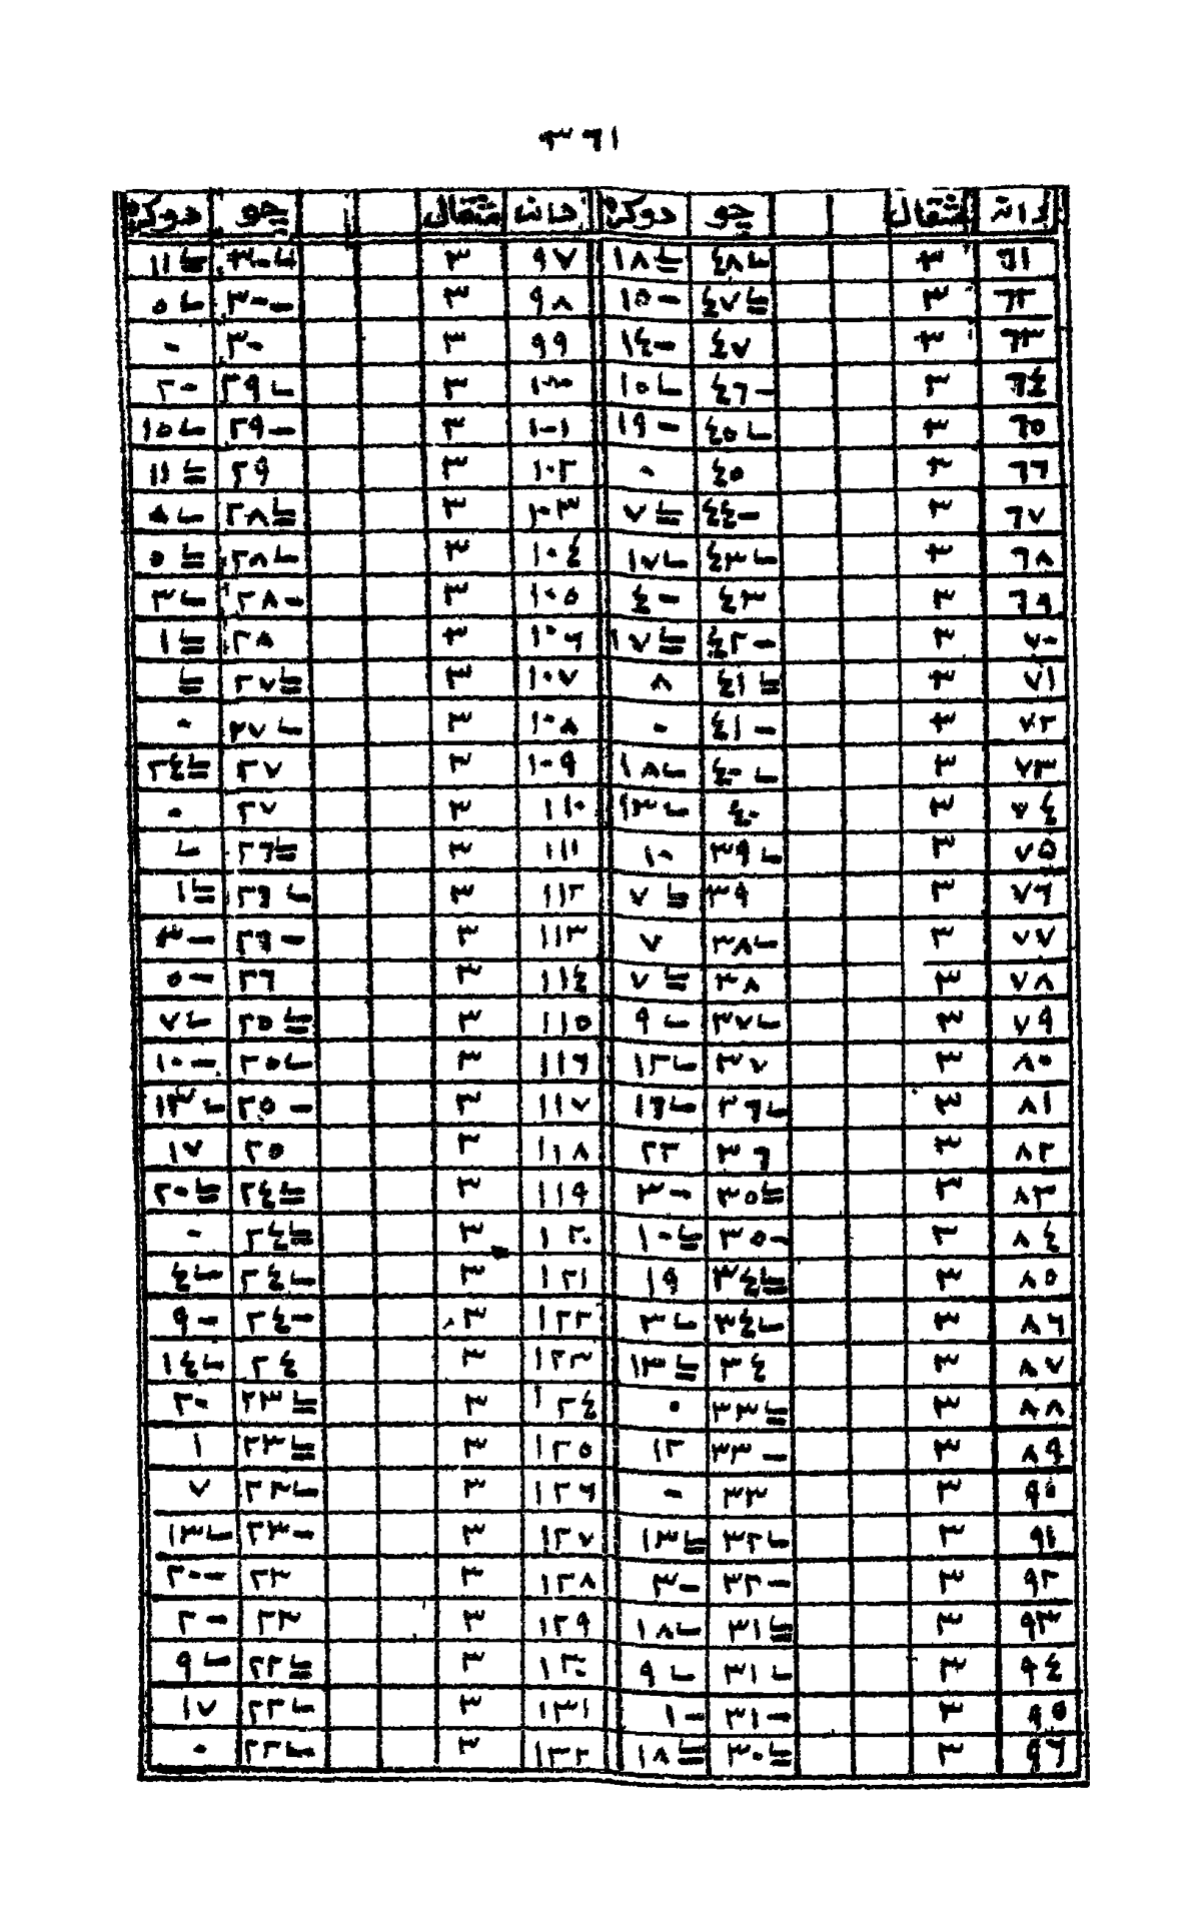 ٣٦١
دانة مثقال جو دوكره دانه مثقال جو دوكره
٦١ ٣ ٤٨ ١٨ ٩٧ ٣ ٣٠ ١١
٦٢ ٣ ٤٧ ١٥- ٩٨ ٣ ٣٠- ٥
٦٣ ٣ ٤٧ ١٤- ٩٩ ٣ ٣٠ -
٦٤ ٣ ٤٦- ١٥ ١٠٠ ٣ ٢٩ ٢٠
٦٥ ٣ ٤٥ ١٩- ١٠١ ٣ ٢٩- ١٥
٦٦ ٣ ٤٥ ٠ ١٠٢ ٣ ٢٩ ١١
٦٧ ٣ ٤٤- ٧ ١٠٣ ٣ ٢٨ ٨
٦٨ ٣ ٤٣ ١٧ ١٠٤ ٣ ٢٨ ٥
٦٩ ٣ ٤٣ ٤- ١٠٥ ٣ ٢٨- ٣
٧٠ ٣ ٤٢- ١٧ ١٠٦ ٣ ٢٨ ١
٧١ ٣ ٤١ ٨ ١٠٧ ٣ ٢٧
٧٢ ٣ ٤١- ٠ ١٠٨ ٣ ٢٧ ٠
٧٣ ٣ ٤٠ ١٨ ١٠٩ ٣ ٢٧ ٢٤
٧٤ ٣ ٤٠ ١٣ ١١٠ ٣ ٢٧ ٠
٧٥ ٣ ٣٩ ١٠ ١١١ ٣ ٢٦
٧٦ ٣ ٣٩ ٧ ١١٢ ٣ ٢٦ ١
٧٧ ٣ ٣٨ ٧ ١١٣ ٣ ٢٦- ٣-
٧٨ ٣ ٣٨ ٧ ١١٤ ٣ ٢٦ ٥-
٧٩ ٣ ٣٧ ٩ ١١٥ ٣ ٢٥ ٧
٨٠ ٣ ٣٧ ١٢ ١١٦ ٣ ٢٥ ١٠-
٨١ ٣ ٣٦ ١٦ ١١٧ ٣ ٢٥- ١٣
٨٢ ٣ ٣٦ ٢٢ ١١٨ ٣ ٢٥ ١٧
٨٣ ٣ ٣٥ ٣- ١١٩ ٣ ٢٤ ٢٠
٨٤ ٣ ٣٥- ١٠ ١٢٠ ٣ ٢٤ ٠
٨٥ ٣ ٣٤ ١٩ ١٢١ ٣ ٢٤ ٤
٨٦ ٣ ٣٤ ٣ ١٢٢ ٣ ٢٤- ٩-
٨٧ ٣ ٣٤ ١٣ ١٢٣ ٣ ٢٤ ١٤
٨٨ ٣ ٣٣ ٠ ١٢٤ ٣ ٢٣ ٢٠
٨٩ ٣ ٣٣- ١٢ ١٢٥ ٣ ٢٣ ١
٩٠ ٣ ٣٣ - ١٢٦ ٣ ٢٣ ٧
٩١ ٣ ٣٢ ١٣ ١٢٧ ٣ ٢٣- ١٣
٩٢ ٣ ٣٢- ٣- ١٢٨ ٣ ٢٣ ٢٠-
٩٣ ٣ ٣١ ١٨ ١٢٩ ٣ ٢٣ ٢-
٩٤ ٣ ٣١ ٩ ١٣٠ ٣ ٢٢ ٩
٩٥ ٣ ٣١- ١- ١٣١ ٣ ٢٢ ١٧
٩٦ ٣ ٣٠ ١٨ ١٣٢ ٣ ٢٢ ٠